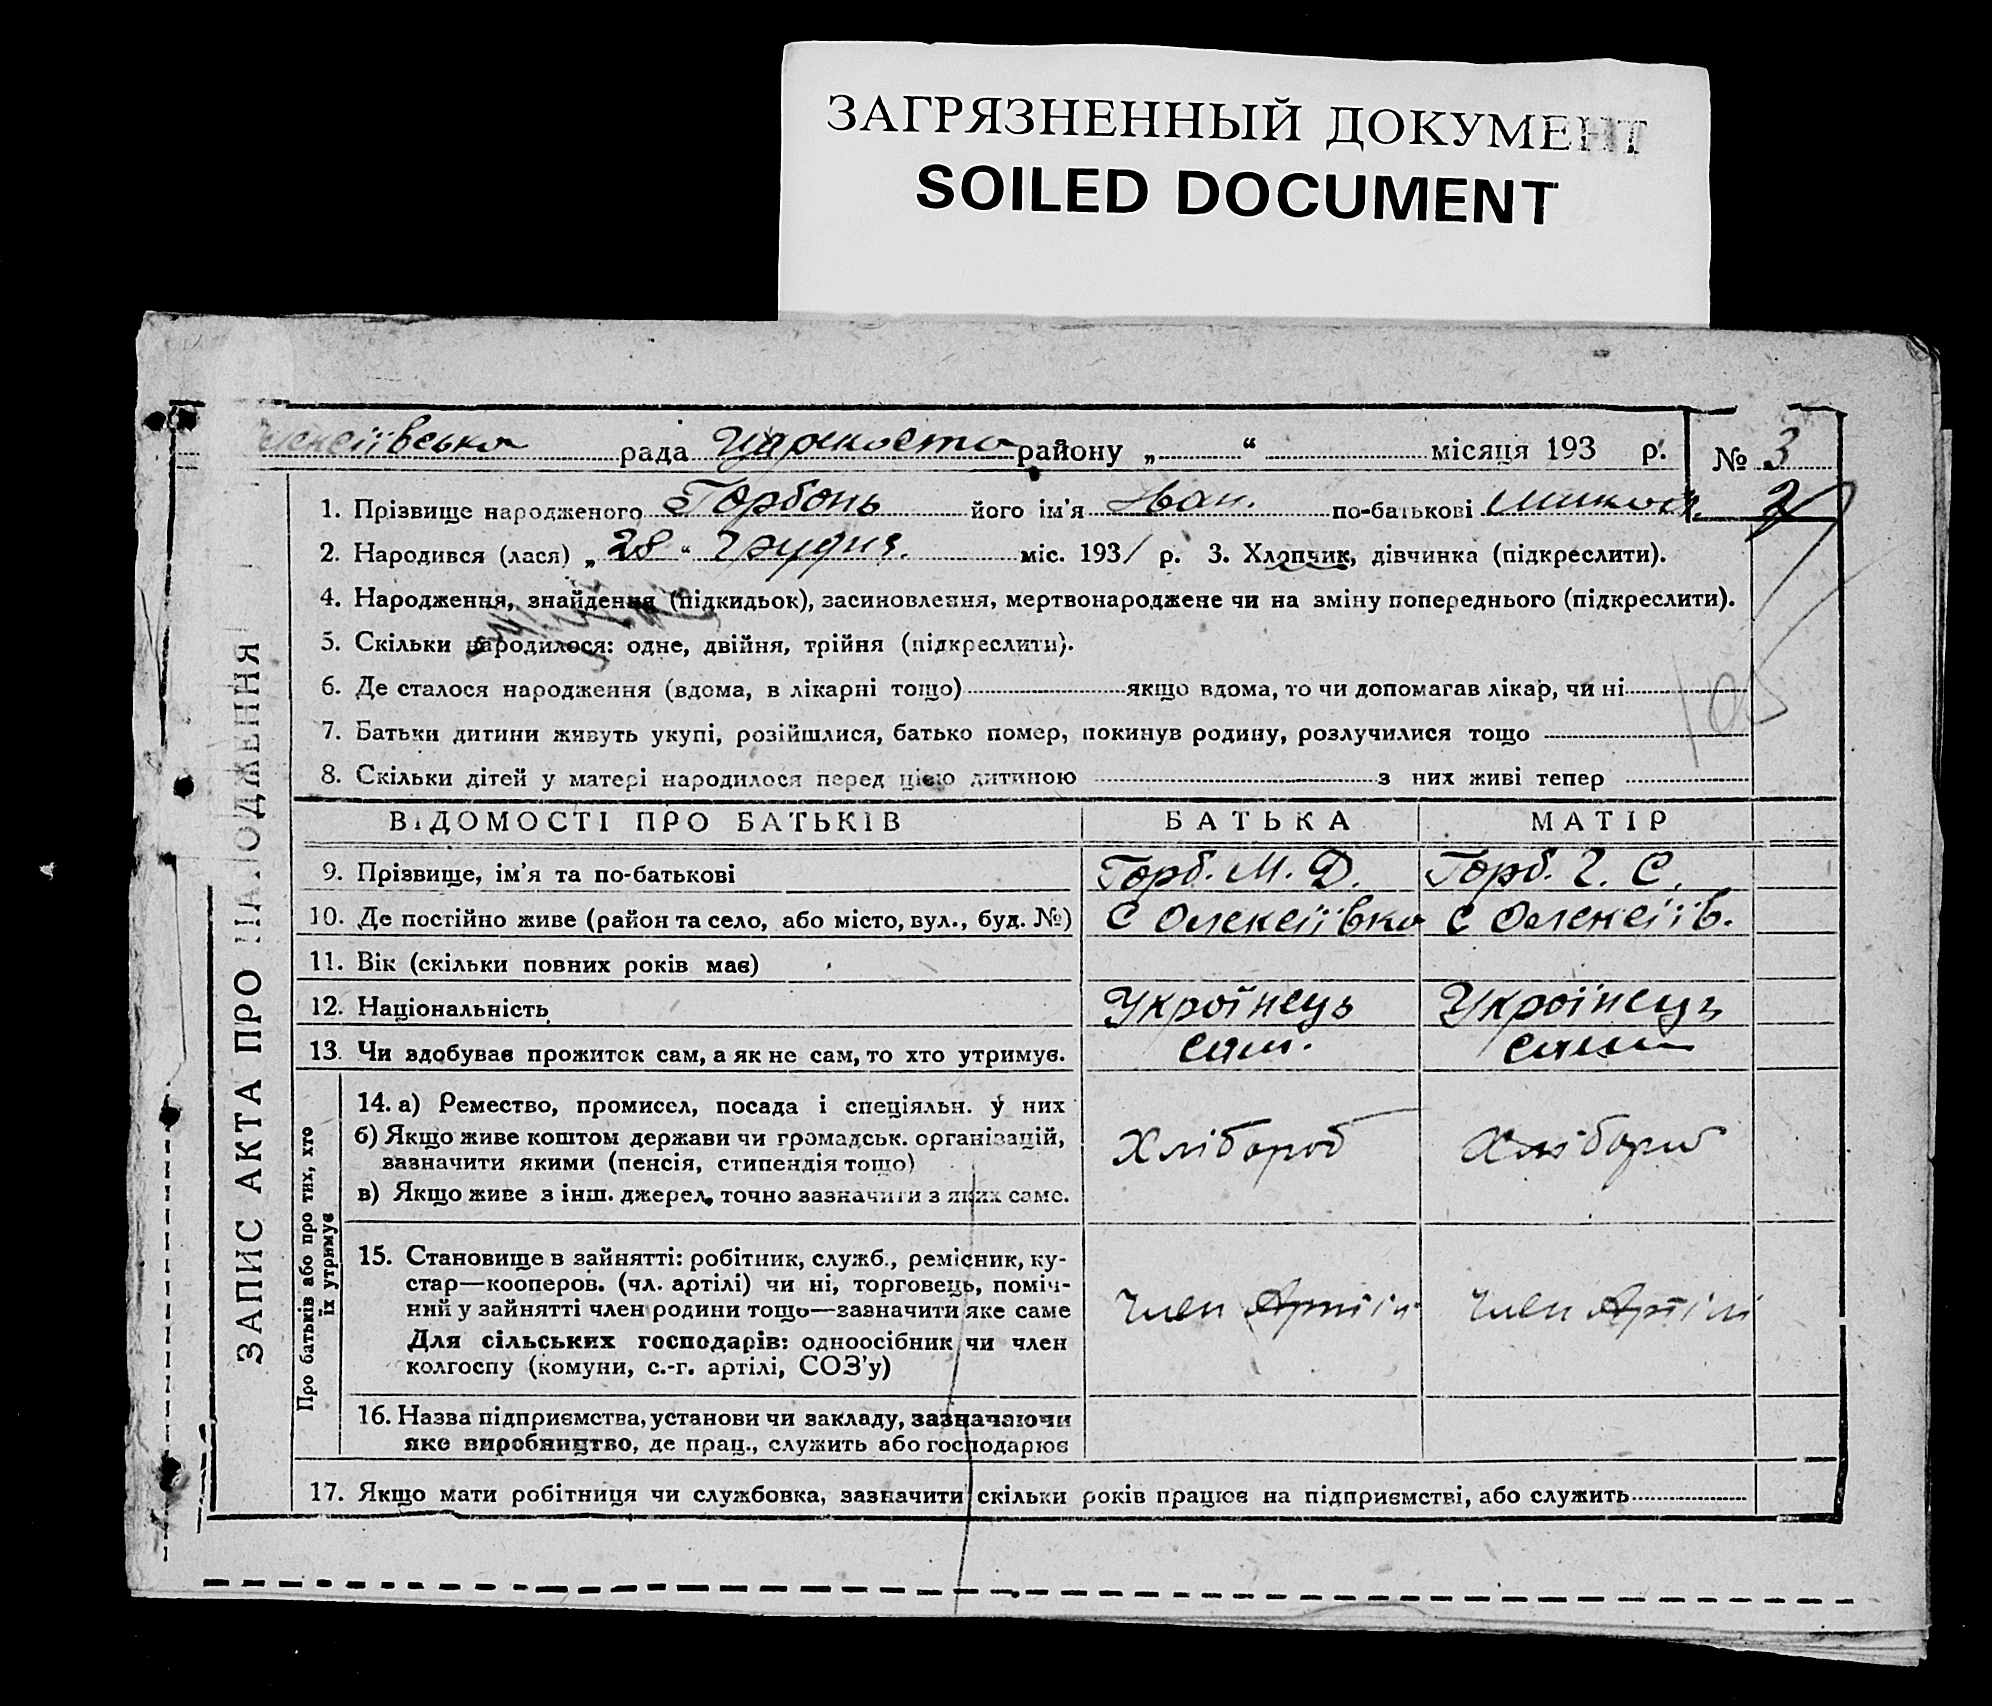 ЗАГРЯЗНЕННЫЙ ДОКУМЕНТ
SOILED DOCUMENT
рада району „ “ місяця 193 р. № 3
1. Прізвище народженого Горбонь його ім'я Іван. по-батькові Микол. 2
2. Народився (лася) „ 28 “ Грудня. міс. 1931 р. 3. Хлопчик, дівчинка (підкреслити).
4. Народження, знайдення (підкидьок), засиновлення, мертвонароджене чи на зміну попереднього (підкреслити).
5. Скільки народилося: одне, двійня, трійня (підкреслити).
6. Де сталося народження (вдома, в лікарні тощо) якщо вдома, то чи допомагав лікар, чи ні
7. Батьки дитини живуть укупі, розійшлися, батько помер, покинув родину, розлучилися тощо
8. Скільки дітей у матері народилося перед цією дитиною з них живі тепер
ЗАПИС АКТА ПРО НАРОДЖЕННЯ
ВІДОМОСТІ ПРО БАТЬКІВ БАТЬКА МАТІР
9. Прізвище, ім'я та по-батькові Горб. М. Д. Горб. Г. С.
10. Де постійно живе (район та село, або місто, вул., буд. №) С Олексіївка С Олексіїв.
11. Вік (скільки повних років має)
12. Національність Українець Українець
13. Чи здобуває прожиток сам, а як не сам, то хто утримує. сам. сама
Про батьків або про тих, хто
їх утримує
14. а) Ремество, промисел, посада і спеціяльн. у них
б) Якщо живе коштом держави чи громадськ. організацій,
зазначити якими (пенсія, стипендія тощо)
Хлібороб Хлібороб
в) Якщо живе з інш. джерел, точно зазначити з яких саме.
15. Становище в зайнятті: робітник, служб., ремісник, ку-
стар—кооперов. (чл. артілі) чи ні, торговець, поміч-
ний у зайнятті член родини тощо—зазначити яке саме
Член Артілі Член Артілі
Для сільських господарів: одноосібник чи член
колгоспу (комуни, с.-г. артілі, СОЗ'у)
16. Назва підприємства, установи чи закладу, зазначаючи
яке виробництво, де прац., служить або господарює
17. Якщо мати робітниця чи службовка, зазначити скільки років працює на підприємстві, або служить